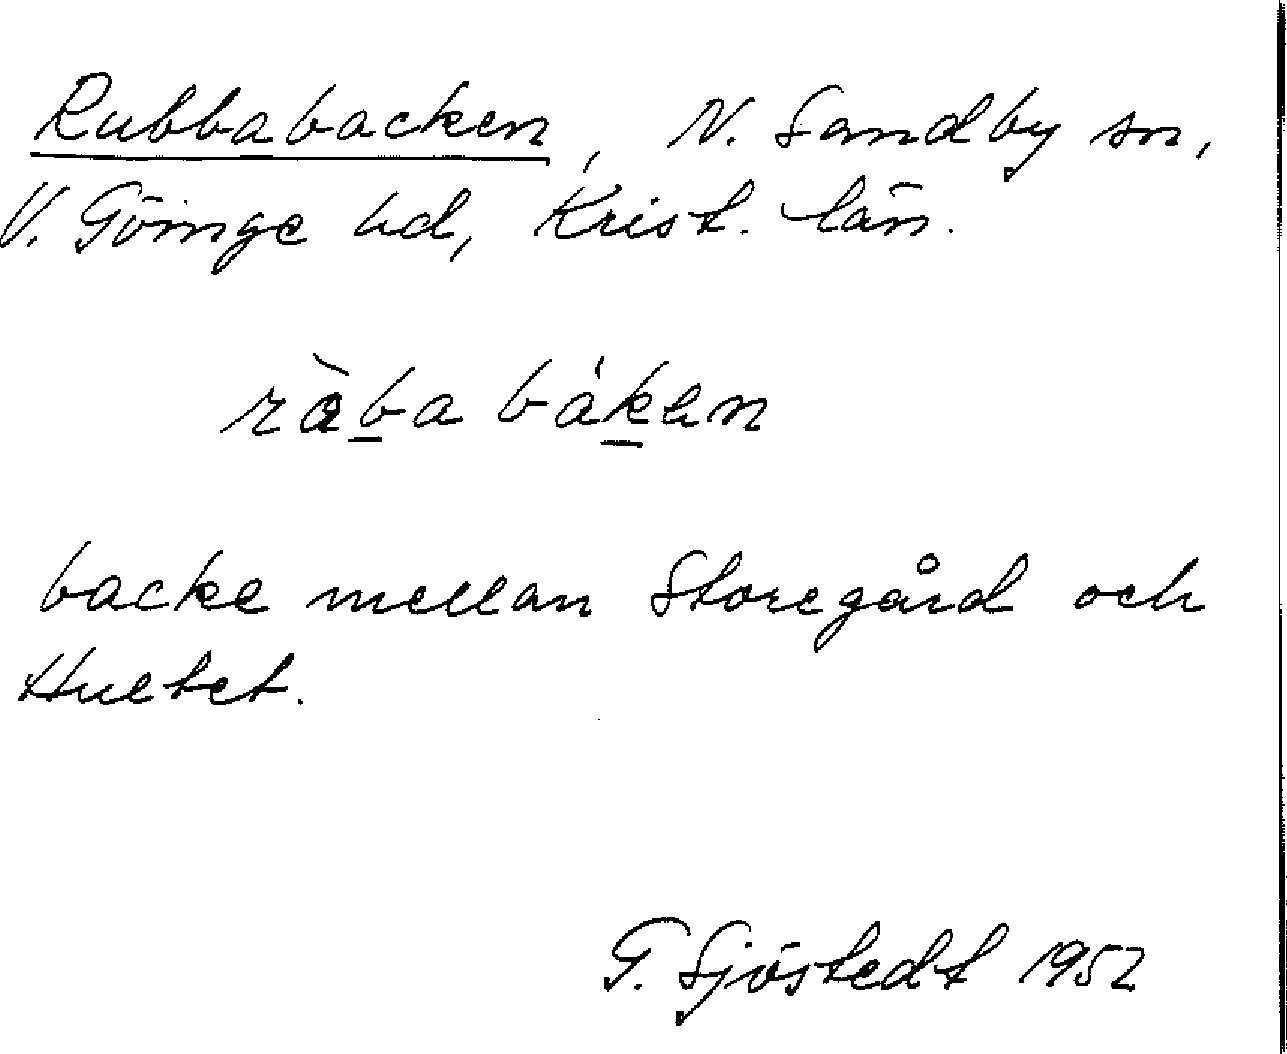 Rubbabacken, N. Sandby sn,
V. Göinge hd, Krist. län.
ràba báken
backe mellan Storegård och
Hultet.
G. Sjöstedt 1952